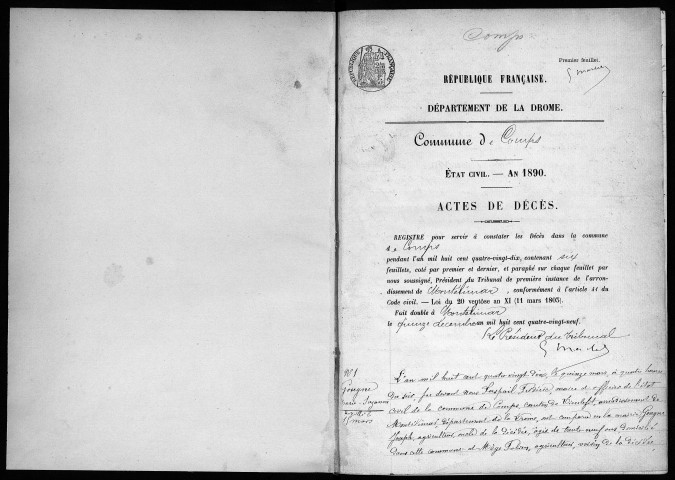 Comps
Premier feuillet.
RÉPUBLIQUE FRANÇAISE
RÉPUBLIQUE FRANÇAISE.
DÉPARTEMENT DE LA DROME.
Commune de Comps
ÉTAT CIVIL. — AN 1890.
ACTES DE DÉCÈS.
REGISTRE pour servir à constater les Décès dans la commune
de Comps
pendant l'an mil huit cent quatre-vingt-dix, contenant six
feuillets, coté par premier et dernier, et paraphé sur chaque feuillet par
nous soussigné, Président du Tribunal de première instance de l'arron-
dissement de Montélimar, conformément à l'article 41 du
Code civil. — Loi du 20 ventôse an XI (11 mars 1803).
Fait double à Montélimar
le quinze décembre an mil huit cent quatre-vingt-neuf.
Le Président du Tribunal
N° 1
Gougne
mars
L'an mil huit cent quatre vingt dix, le quinze mars, à quatre heures
du soir, par devant nous Raspail Frédéric, maire et officier de l'état
civil de la commune de Comps, canton de Dieulefit, arrondissement de
Montélimar, département de la Drôme, est comparu en la mairie Gougne
Joseph, agriculteur, oncle de la décédée, âgé de trente neuf ans, domicilié
dans cette commune et Mège agriculteur, voisin de la décédée